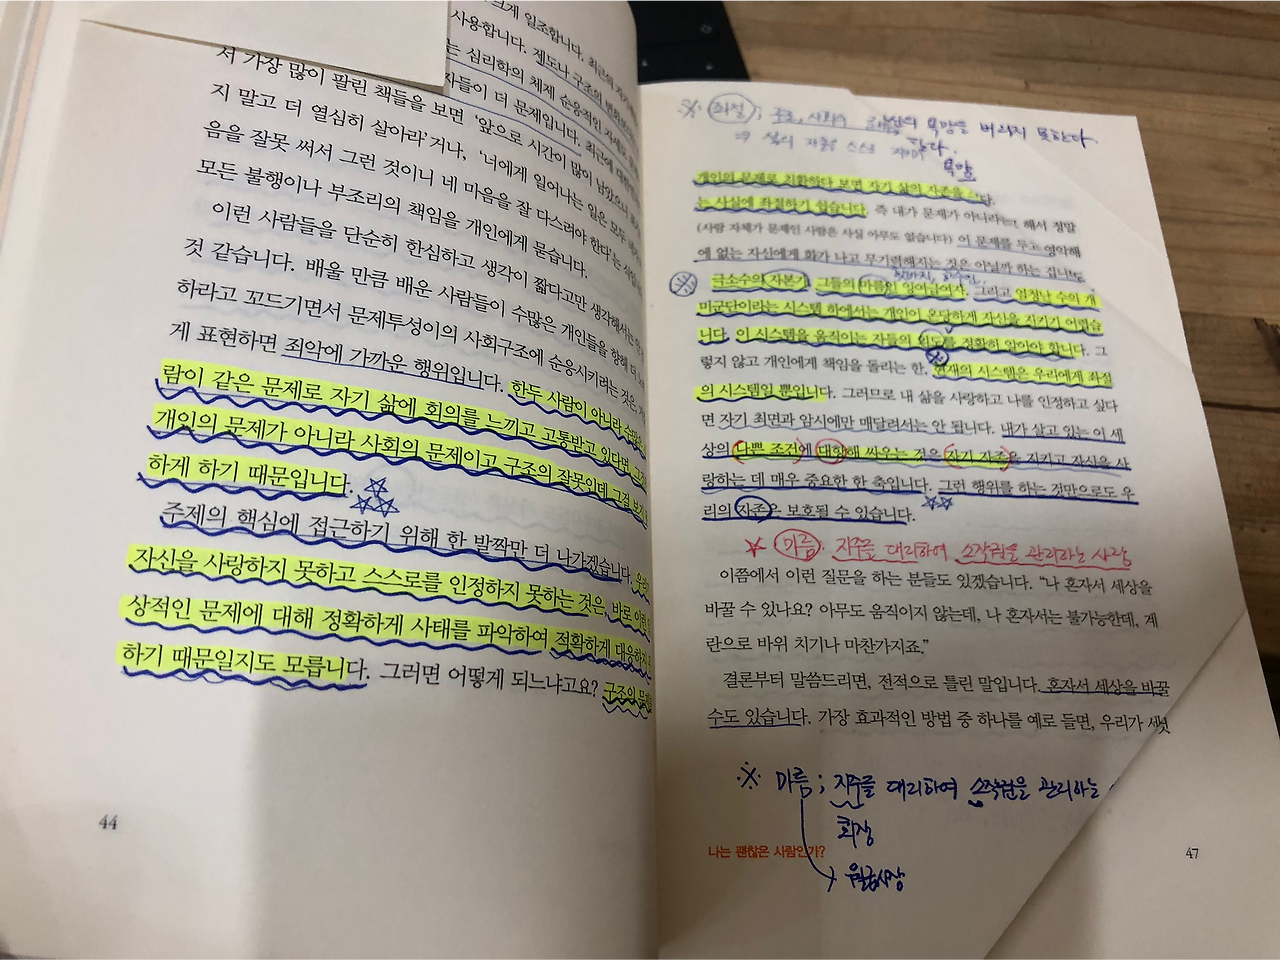 크게 일조합니다. 최근의
사용합니다. 제도나 구조의 변화보다
는 심리학의 체제 순응적인 자세도
자들이 더 문제입니다. 최근에 대한민국에
서 가장 많이 팔린 책들을 보면 '앞으로 시간이 많이 남았으니
지 말고 더 열심히 살아라'거나, '너에게 일어나는 일은 모두 네가
음을 잘못 써서 그런 것이니 네 마음을 잘 다스려야 한다'는
모든 불행이나 부조리의 책임을 개인에게 묻습니다.
이런 사람들을 단순히 한심하고 생각이 짧다고만 생각해서는
것 같습니다. 배울 만큼 배운 사람들이 수많은 개인들을 향해 더
하라고 꼬드기면서 문제투성이의 사회구조에 순응시키려는 것은
게 표현하면 죄악에 가까운 행위입니다. 한두 사람이 아니라 수많은
람이 같은 문제로 자기 삶에 회의를 느끼고 고통받고 있다면, 그건
개인의 문제가 아니라 사회의 문제이고 구조의 잘못인데 그걸
하게 하기 때문입니다.
주제의 핵심에 접근하기 위해 한 발짝만 더 나가겠습니다.
자신을 사랑하지 못하고 스스로를 인정하지 못하는 것은, 바로 이런
상적인 문제에 대해 정확하게 사태를 파악하여 적확하게 대응하지
하기 때문일지도 모릅니다. 그러면 어떻게 되느냐고요? 구조의 문제를
44
※ 좌절; 구조, 사회의 욕망을 버리지 못한다.
⇒ 삶의
욕망
개인의 문제로 치환하다 보면 자기 삶의 자존을
는 사실에 좌절하기 쉽습니다. 즉 내가 문제가 아니라는 해서 정말
(사람 자체가 문제인 사람은 사실 아무도 없습니다) 이 문제를 두고 영악해
에 없는 자신에게 화가 나고 무기력해지는 것은 아닐까 하는 겁니다.
※ 극소수의 자본가, 그들의 마름인 잉여급여자, 그리고 엄청난 수의 개
미군단이라는 시스템 하에서는 개인이 온당하게 자신을 지키기 어렵습
니다. 이 시스템을 움직이는 자들의 의도를 정확히 알아야 합니다. 그
렇지 않고 개인에게 책임을 돌리는 한, 현재의 시스템은 우리에게 좌절
의 시스템일 뿐입니다. 그러므로 내 삶을 사랑하고 나를 인정하고 싶다
면 자기 최면과 암시에만 매달려서는 안 됩니다. 내가 살고 있는 이 세
상의 나쁜 조건에 대항해 싸우는 것은 자기 자존을 지키고 자신을 사
랑하는 데 매우 중요한 한 축입니다. 그런 행위를 하는 것만으로도 우
리의 자존은 보호될 수 있습니다.
마름. 지주를 대리하여 소작권을 관리하는 사람
이쯤에서 이런 질문을 하는 분들도 있겠습니다. "나 혼자서 세상을
바꿀 수 있나요? 아무도 움직이지 않는데, 나 혼자서는 불가능한데, 계
란으로 바위 치기나 마찬가지죠."
결론부터 말씀드리면, 전적으로 틀린 말입니다. 혼자서 세상을 바꿀
수도 있습니다. 가장 효과적인 방법 중 하나를 예로 들면, 우리가 세
※ 마름; 지주를 대리하여 소작권을 관리하는
회장
나는 괜찮은 사람인가?
47
월급사장